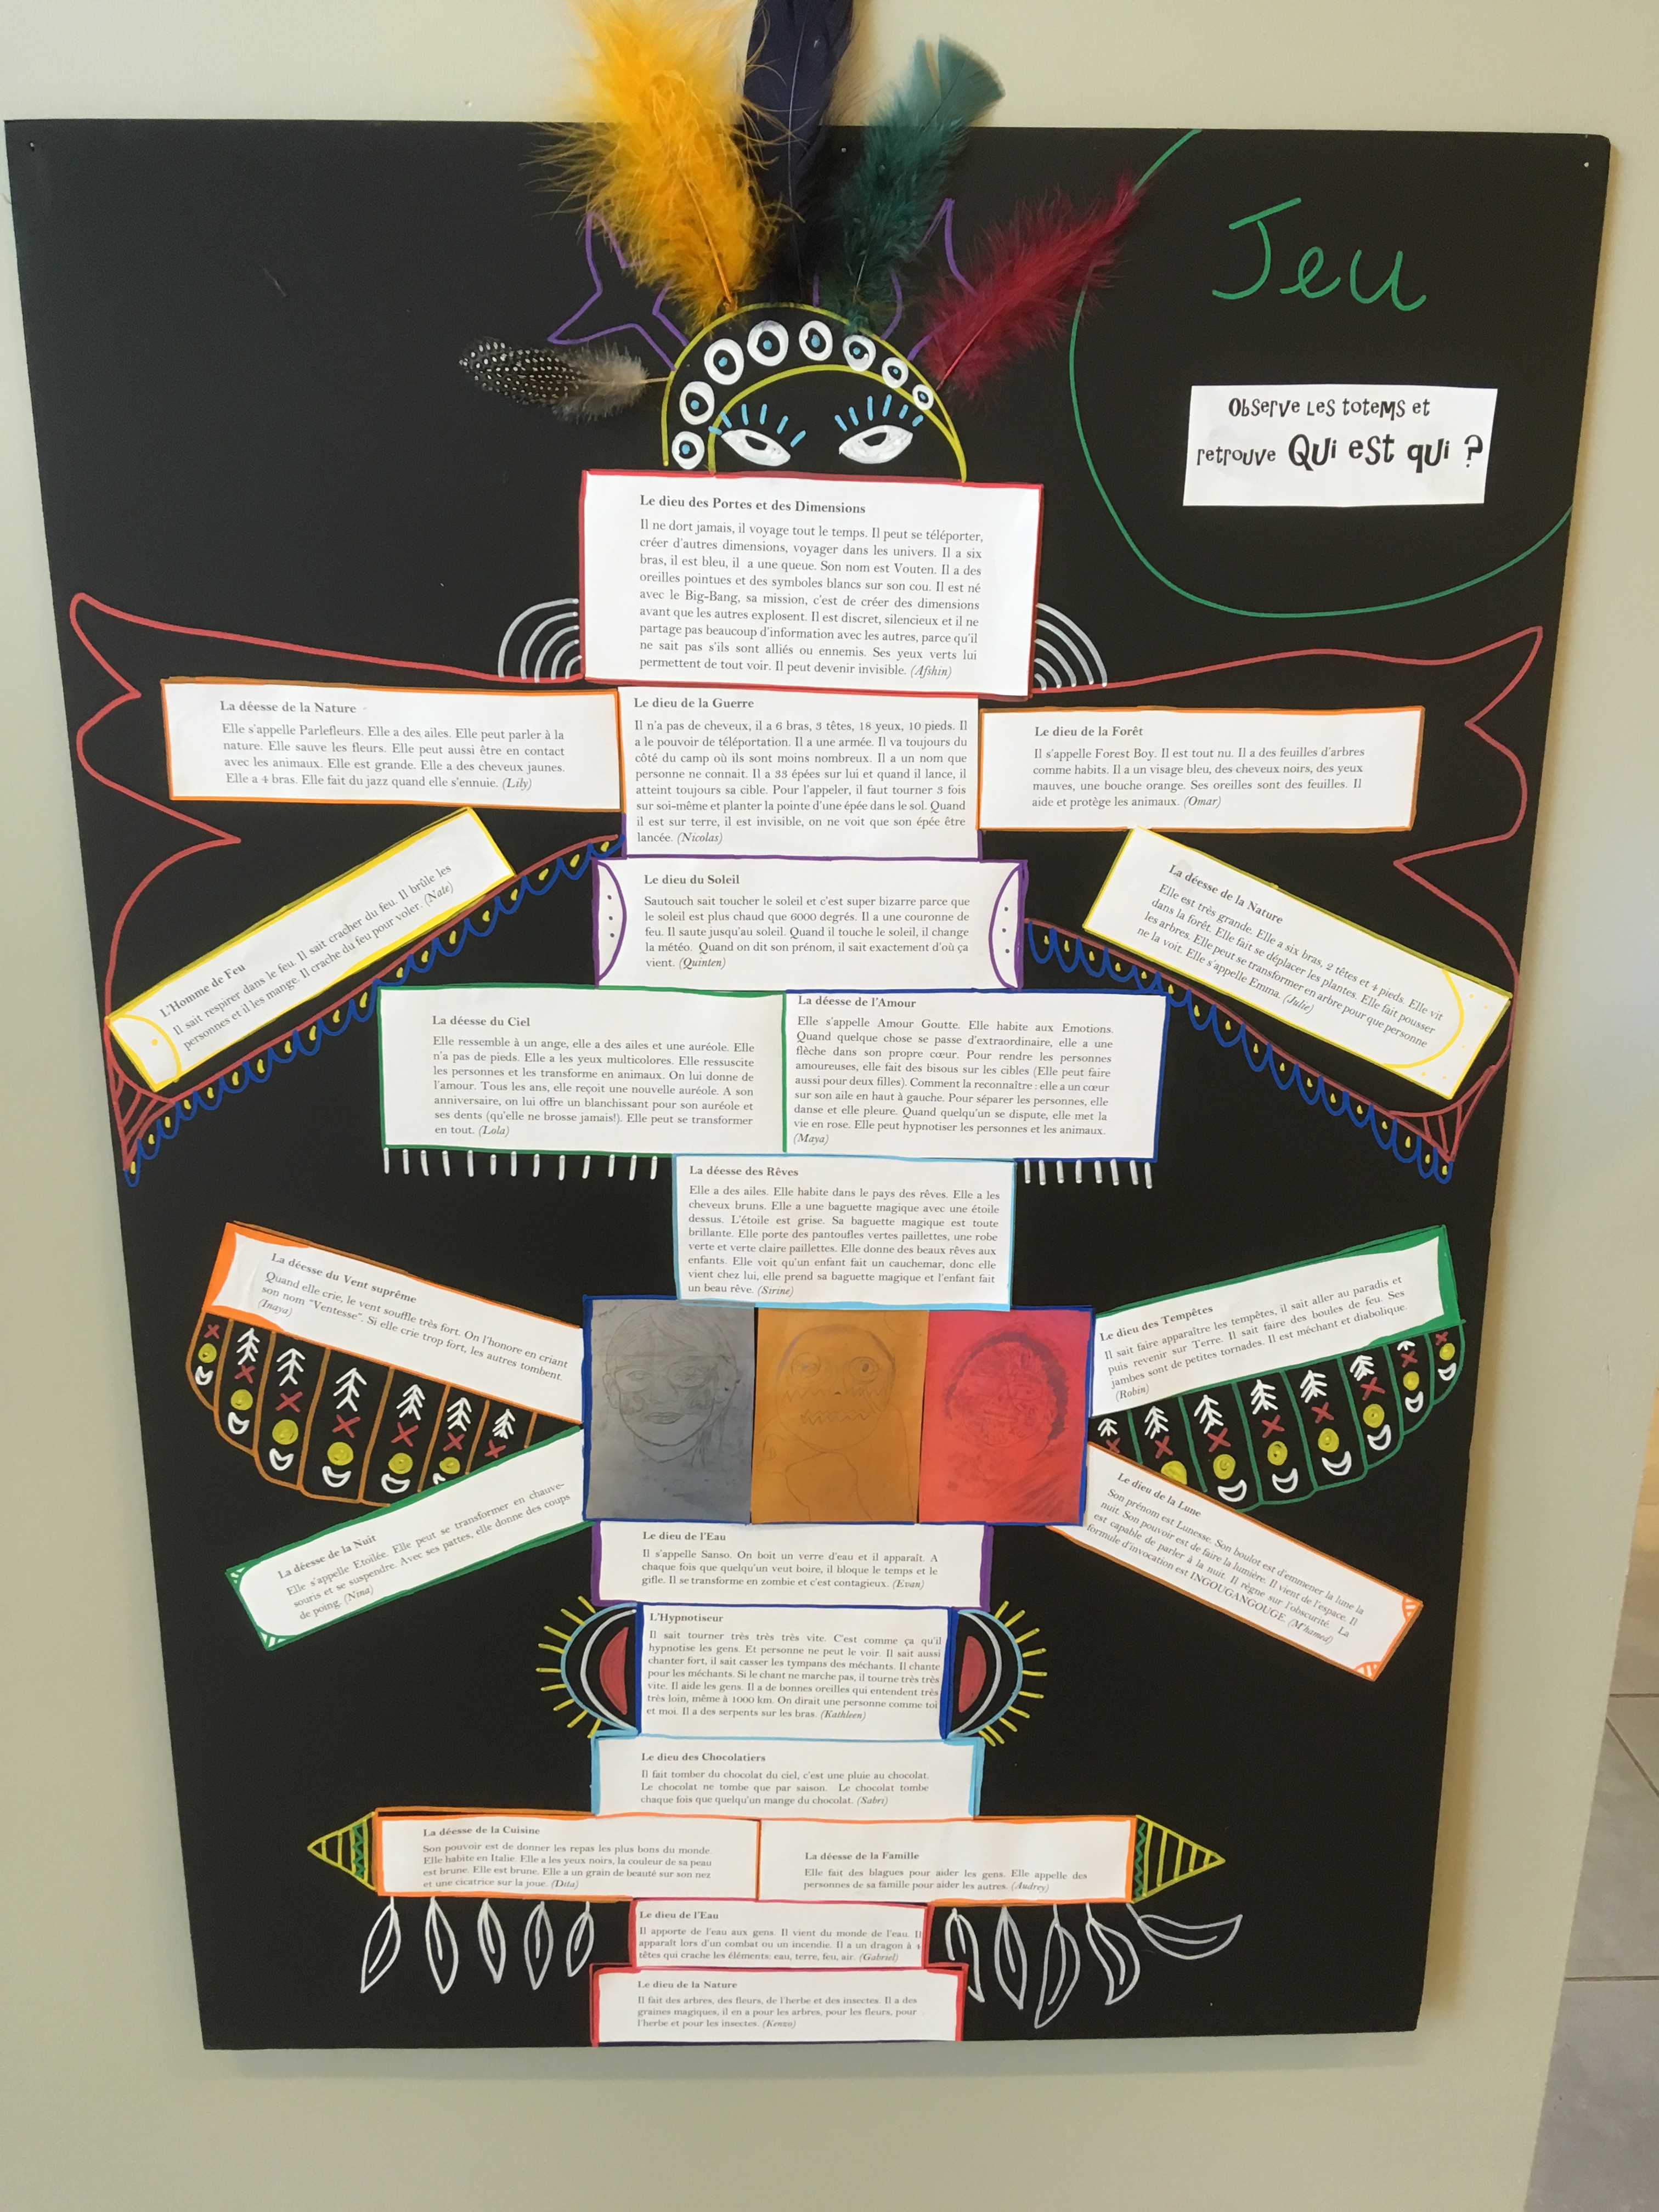 Jeu
Observe les totems et
retrouve Qui est qui ?
Le dieu des Portes et des Dimensions
Il ne dort jamais, il voyage tout le temps. Il peut se téléporter,
créer d'autres dimensions, voyager dans les univers. Il a six
bras, il est bleu, il a une queue. Son nom est Vouten. Il a des
oreilles pointues et des symboles blancs sur son cou. Il est né
avec le Big-Bang, sa mission, c'est de créer des dimensions
avant que les autres explosent. Il est discret, silencieux et il ne
partage pas beaucoup d'information avec les autres, parce qu'il
ne sait pas s'ils sont alliés ou ennemis. Ses yeux verts lui
permettent de tout voir. Il peut devenir invisible. (Afshin)
La déesse de la Nature
Elle s'appelle Parlefleurs. Elle a des ailes. Elle peut parler à la
nature. Elle sauve les fleurs. Elle peut aussi être en contact
avec les animaux. Elle est grande. Elle a des cheveux jaunes.
Elle a 4 bras. Elle fait du jazz quand elle s'ennuie. (Lily)
Le dieu de la Guerre
Il n'a pas de cheveux, il a 6 bras, 3 têtes, 18 yeux, 10 pieds. Il
a le pouvoir de téléportation. Il a une armée. Il va toujours du
côté du camp où ils sont moins nombreux. Il a un nom que
personne ne connait. Il a 33 épées sur lui et quand il lance, il
atteint toujours sa cible. Pour l'appeler, il faut tourner 3 fois
sur soi-même et planter la pointe d'une épée dans le sol. Quand
il est sur terre, il est invisible, on ne voit que son épée être
lancée. (Nicolas)
Le dieu de la Forêt
Il s'appelle Forest Boy. Il est tout nu. Il a des feuilles d'arbres
comme habits. Il a un visage bleu, des cheveux noirs, des yeux
mauves, une bouche orange. Ses oreilles sont des feuilles. Il
aide et protège les animaux. (Omar)
L'Homme de Feu
Il sait respirer dans le feu. Il sait cracher du feu. Il brûle les
personnes et il les mange. Il crache du feu pour voler. (Nate)
Le dieu du Soleil
Sautouch sait toucher le soleil et c'est super bizarre parce que
le soleil est plus chaud que 6000 degrés. Il a une couronne de
feu. Il saute jusqu'au soleil. Quand il touche le soleil, il change
la météo. Quand on dit son prénom, il sait exactement d'où ça
vient. (Quinten)
La déesse de la Nature
Elle est très grande. Elle a six bras, 2 têtes et 4 pieds. Elle vit
dans la forêt. Elle fait se déplacer les plantes. Elle fait pousser
les arbres. Elle peut se transformer en arbre pour que personne
ne la voit. Elle s'appelle Emma. (Julie)
La déesse du Ciel
Elle ressemble à un ange, elle a des ailes et une auréole. Elle
n'a pas de pieds. Elle a les yeux multicolores. Elle ressuscite
les personnes et les transforme en animaux. On lui donne de
l'amour. Tous les ans, elle reçoit une nouvelle auréole. A son
anniversaire, on lui offre un blanchissant pour son auréole et
ses dents (qu'elle ne brosse jamais!). Elle peut se transformer
en tout. (Lola)
La déesse de l'Amour
Elle s'appelle Amour Goutte. Elle habite aux Emotions.
Quand quelque chose se passe d'extraordinaire, elle a une
flèche dans son propre cœur. Pour rendre les personnes
amoureuses, elle fait des bisous sur les cibles (Elle peut faire
aussi pour deux filles). Comment la reconnaître : elle a un cœur
sur son aile en haut à gauche. Pour séparer les personnes, elle
danse et elle pleure. Quand quelqu'un se dispute, elle met la
vie en rose. Elle peut hypnotiser les personnes et les animaux.
(Maya)
La déesse des Rêves
Elle a des ailes. Elle habite dans le pays des rêves. Elle a les
cheveux bruns. Elle a une baguette magique avec une étoile
dessus. L'étoile est grise. Sa baguette magique est toute
brillante. Elle porte des pantoufles vertes paillettes, une robe
verte et verte claire paillettes. Elle donne des beaux rêves aux
enfants. Elle voit qu'un enfant fait un cauchemar, donc elle
vient chez lui, elle prend sa baguette magique et l'enfant fait
un beau rêve. (Sirine)
La déesse du Vent suprême
Quand elle crie, le vent souffle très fort. On l'honore en criant
son nom "Ventesse". Si elle crie trop fort, les autres tombent.
(Inaya)
Le dieu des Tempêtes
Il sait faire apparaître les tempêtes, il sait aller au paradis et
puis revenir sur Terre. Il sait faire des boules de feu. Ses
jambes sont de petites tornades. Il est méchant et diabolique.
(Robin)
La déesse de la Nuit
Elle s'appelle Etoilée. Elle peut se transformer en chauve-
souris et se suspendre. Avec ses pattes, elle donne des coups
de poing. (Nina)
Le dieu de la Lune
Son prénom est Lunesse. Son boulot est d'emmener la lune la
nuit. Son pouvoir est de faire la lumière. Il vient de l'espace. Il
est capable de parler à la nuit. Il règne sur l'obscurité. La
formule d'invocation est INGOUGANGOUGE. (M'hamed)
Le dieu de l'Eau
Il s'appelle Sanso. On boit un verre d'eau et il apparaît. A
chaque fois que quelqu'un veut boire, il bloque le temps et le
gifle. Il se transforme en zombie et c'est contagieux. (Evan)
L'Hypnotiseur
Il sait tourner très très très vite. C'est comme ça qu'il
hypnotise les gens. Et personne ne peut le voir. Il sait aussi
chanter fort, il sait casser les tympans des méchants. Il chante
pour les méchants. Si le chant ne marche pas, il tourne très très
vite. Il aide les gens. Il a de bonnes oreilles qui entendent très
très loin, même à 1000 km. On dirait une personne comme toi
et moi. Il a des serpents sur les bras. (Kathleen)
Le dieu des Chocolatiers
Il fait tomber du chocolat du ciel, c'est une pluie au chocolat.
Le chocolat ne tombe que par saison. Le chocolat tombe
chaque fois que quelqu'un mange du chocolat. (Sabri)
La déesse de la Cuisine
Son pouvoir est de donner les repas les plus bons du monde.
Elle habite en Italie. Elle a les yeux noirs, la couleur de sa peau
est brune. Elle est brune. Elle a un grain de beauté sur son nez
et une cicatrice sur la joue. (Dita)
La déesse de la Famille
Elle fait des blagues pour aider les gens. Elle appelle des
personnes de sa famille pour aider les autres. (Audrey)
Le dieu de l'Eau
Il apporte de l'eau aux gens. Il vient du monde de l'eau. Il
apparaît lors d'un combat ou un incendie. Il a un dragon à 4
têtes qui crache les éléments: eau, terre, feu, air. (Gabriel)
Le dieu de la Nature
Il fait des arbres, des fleurs, de l'herbe et des insectes. Il a des
graines magiques, il en a pour les arbres, pour les fleurs, pour
l'herbe et pour les insectes. (Kenzo)